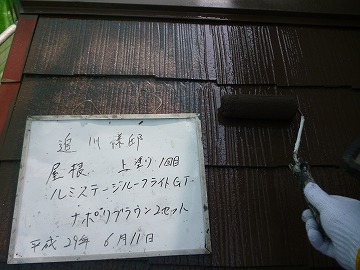 追川様邸
屋根 上塗り1回目
ルミステージルーフライトGT
ナポリブラウン2セット
平成29年6月11日